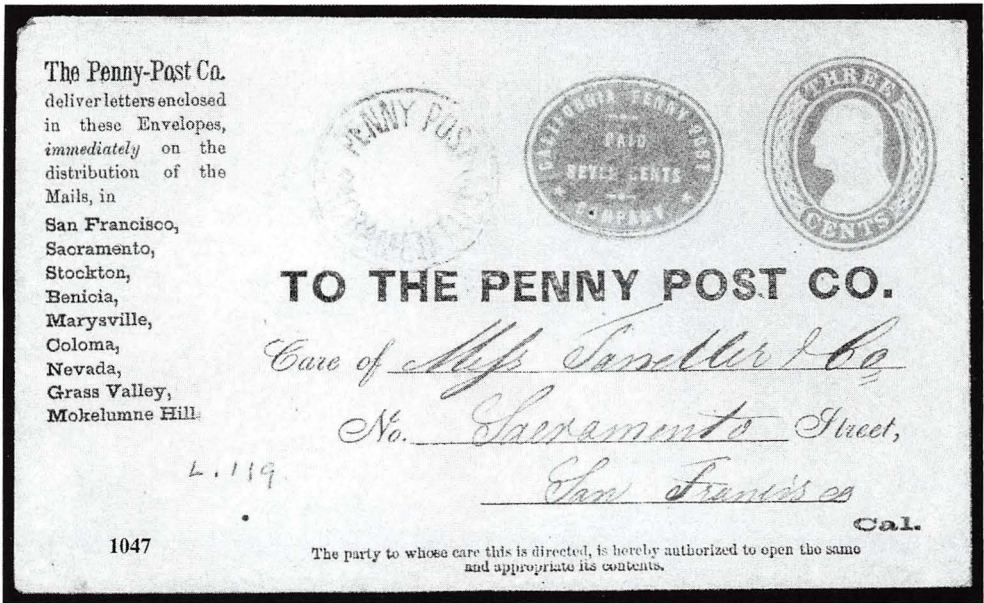 The Penny-Post Co.
deliver letters enclosed
in these Envelopes,
immediately on the
distribution of the
Mails, in
San Francisco,
Sacramento,
Stockton,
Benicia,
Marysville,
Coloma,
Nevada,
Grass Valley,
Mokelumne Hill
PENNY POST
CALIFORNIA PENNY POST
PAID
SEVEN CENTS
COMPANY
THREE
CENTS
TO THE PENNY POST CO.
Care of Mess & Co
No. Sacramento Street,
San Francisco
Cal.
L. 119
1047
The party to whose care this is directed, is hereby authorized to open the same
and appropriate its contents.